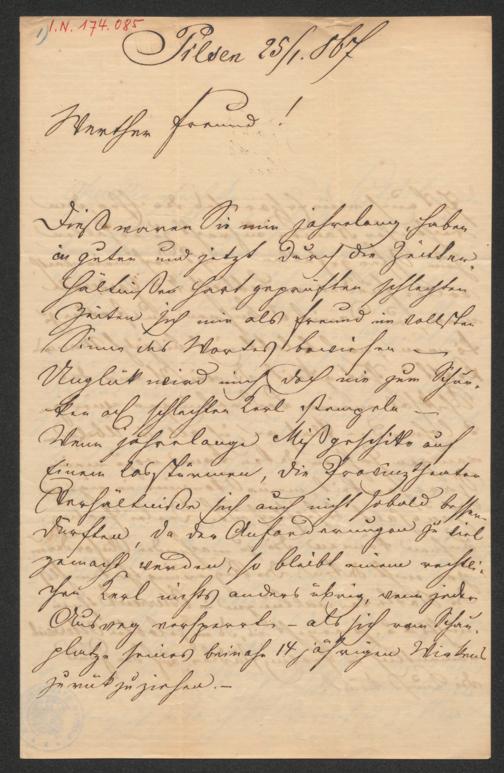 1) I.N. 174.085
Pilsen 25/1. 867
Werther Freund!
Dieß waren Sie mir jahrelang, haben
in guten und jetzt durch die Zeitver-
hältnißen hart geprüften schlechten
Zeiten sich mir als Freund im vollsten
Sinne des Wortes bewiesen —
Unglük wird mich doch nie zum Schur-
ken od schlechten Kerl stempeln —
Wenn jahrelange Mißgeschike auf
Einem losstürmen, die Provinztheater
Verhältniße sich auch nicht sobald bessern
dürften, da der Anforderungen zu viel
gemacht werden, so bleibt einem rechtli-
chen Kerl nichts anders übrig, wenn jeder
Ausweg versperrt – als sich vom Schau-
platze seines beinahe 14 jährigen Wirkens
zurükzuziehen. –